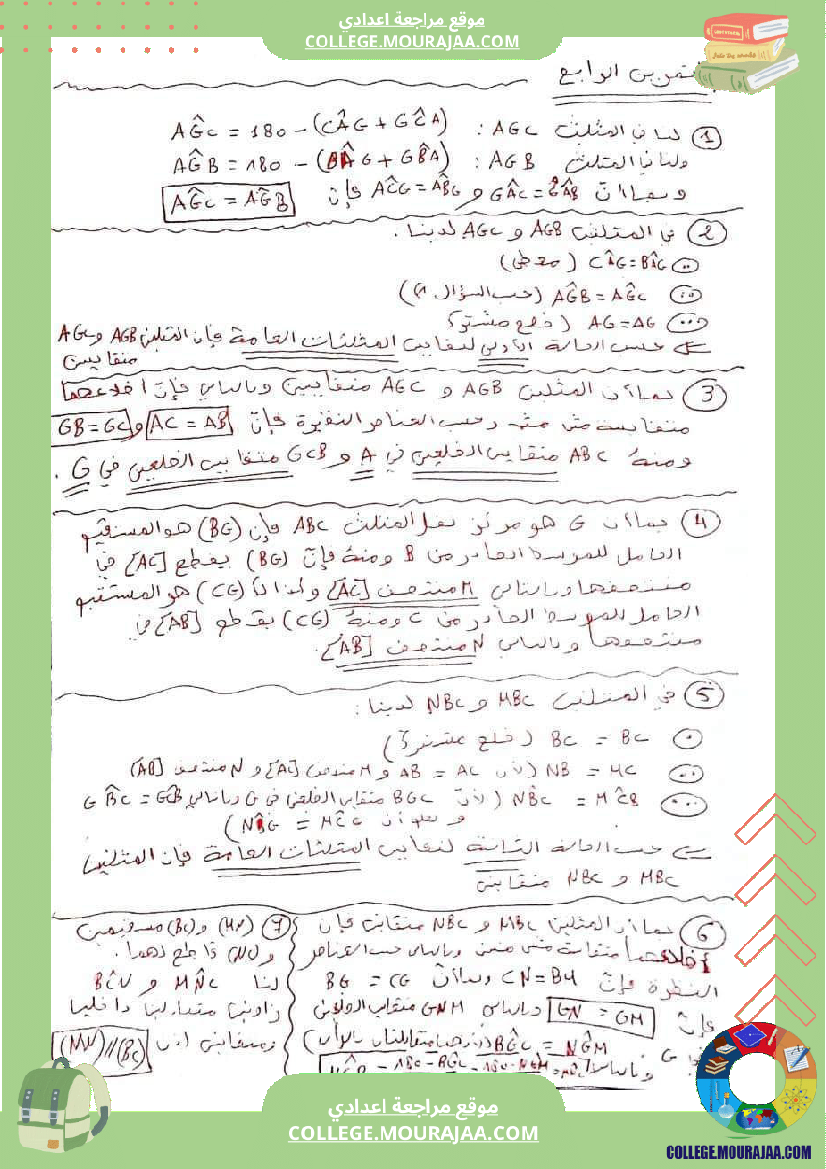 موقع مراجعة اعدادي
COLLEGE.MOURAJAA.COM
التمرين الرابع
① لدينا في المثلث AGC : AĜC = 180 - (CÂG + GĈA)
ولدينا في المثلث AGB : AĜB = 180 - (BÂG + GB̂A)
وبما أن GÂC = GÂB و AĈG = AB̂G فإن AĜC = AĜB
② في المثلثين AGB و AGC لدينا :
CÂG = BÂG (معطى)
AĜB = AĜC (حسب السؤال 1)
AG = AG (ضلع مشترك)
⇐ حسب الحالة الأولى لتقايس المثلثات العامة فإن المثلثين AGB و AGC
متقايسين
③ بما أن المثلثين AGB و AGC متقايسين وبالتالي فإن أضلاعهما
متقايسة مثنى مثنى وحسب العناصر النظيرة فإن AC = AB و GB = GC
ومنه ABC متقايس الضلعين في A و GCB متقايس الضلعين في G .
④ بما أن G هو مركز ثقل المثلث ABC فإن (BG) هو المستقيم
الحامل للموسط الصادر من B ومنه فإن (BG) يقطع [AC] في
منتصفها وبالتالي M منتصف [AC] وكذا (CG) هو المستقيم
الحامل للموسط الصادر من C ومنه (CG) يقطع [AB] في
منتصفها وبالتالي N منتصف [AB].
⑤ في المثلثين MBC و NBC لدينا :
BC = BC (ضلع مشترك)
NB = MC (لأن AB = AC و M منتصف [AC] و N منتصف [AB])
NB̂C = MĈB (لأن BGC متقايس الضلعين في G وبالتالي GB̂C = GĈB
و بما أن NB̂G = MĈG)
⇐ حسب الحالة الثانية لتقايس المثلثات العامة فإن المثلثين
MBC و NBC متقايسين
⑥ بما أن المثلثين MBC و NBC متقايسين فإن
أضلاعهما متقايسة مثنى مثنى وبالتالي حسب العناصر
النظيرة فإن CN = BM وبما أن BG = CG
فإن GN = GM وبالتالي GNM متقايس الضلعين
BĜC = NĜM
وبالتالي
⑦ (MN) و (BC) مستقيمين
و (NC) قاطع لهما.
لدينا MN̂C و BĈN
زاويتين متبادلتين داخليا
ومتقايستين اذن (MN)//(BC)
موقع مراجعة اعدادي
COLLEGE.MOURAJAA.COM
COLLEGE.MOURAJAA.COM